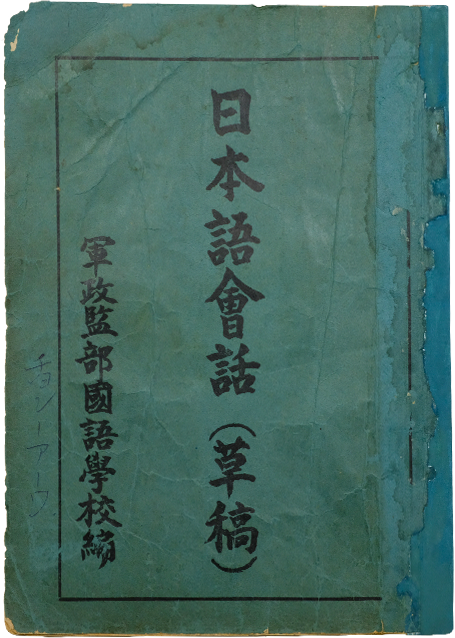 日本語會話（草稿）
軍政監部國語學校編
チョンーアーワ